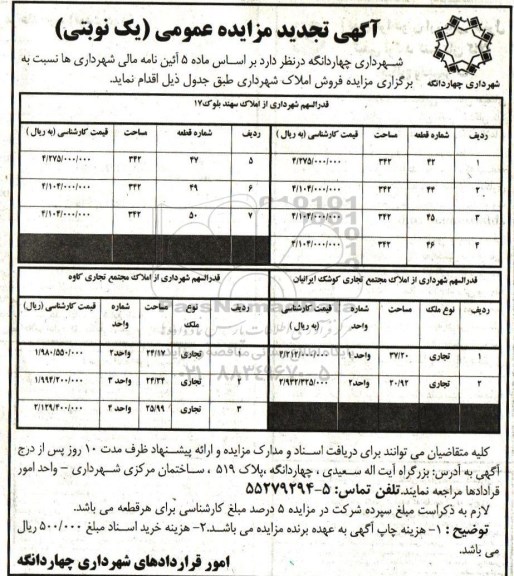 آگهی تجدید مزایده عمومی (یک نوبتی)
شهرداری چهاردانگه
شهرداری چهاردانگه درنظر دارد بر اساس ماده ۵ آئین نامه مالی شهرداری ها نسبت به
برگزاری مزایده فروش املاک شهرداری طبق جدول ذیل اقدام نماید.
قدرالسهم شهرداری از املاک سهند بلوک۱۷
ردیف شماره قطعه مساحت قیمت کارشناسی (به ریال) ردیف شماره قطعه مساحت قیمت کارشناسی (به ریال)
۱ ۴۲ ۳۴۲ ۴/۲۷۵/۰۰۰/۰۰۰ ۵ ۴۷ ۳۴۲ ۴/۲۷۵/۰۰۰/۰۰۰
۲ ۴۴ ۳۴۲ ۴/۱۰۴/۰۰۰/۰۰۰ ۶ ۴۹ ۳۴۲ ۴/۱۰۴/۰۰۰/۰۰۰
۳ ۴۵ ۳۴۲ ۴/۱۰۴/۰۰۰/۰۰۰ ۷ ۵۰ ۳۴۲ ۴/۱۰۴/۰۰۰/۰۰۰
۴ ۴۶ ۳۴۲ ۴/۱۰۴/۰۰۰/۰۰۰
قدرالسهم شهرداری از املاک مجتمع تجاری کوشک ایرانیان
ردیف نوع ملک مساحت شماره واحد قیمت کارشناسی (به ریال)
۱ تجاری ۳۷/۲۰ واحد۱
۲ تجاری ۲۰/۹۲ واحد۲ ۲/۹۳۲/۳۲۵/۰۰۰
قدرالسهم شهرداری از املاک مجتمع تجاری کاوه
ردیف نوع ملک مساحت شماره واحد قیمت کارشناسی (ریال)
۱ تجاری ۲۴/۱۷ واحد۲ ۱/۹۸۰/۵۵۰/۰۰۰
۲ تجاری ۲۴/۳۴ واحد ۳ ۱/۹۹۴/۲۰۰/۰۰۰
۳ تجاری ۲۵/۹۹ واحد ۴ ۲/۱۲۹/۴۰۰/۰۰۰
کلیه متقاضیان می توانند برای دریافت اسناد و مدارک مزایده و ارائه پیشنهاد ظرف مدت ۱۰ روز پس از درج
آگهی به آدرس: بزرگراه آیت اله سعیدی ، چهاردانگه ،پلاک ۵۱۹ ، ساختمان مرکزی شهرداری – واحد امور
قرادادها مراجعه نمایند.تلفن تماس: ۵-۵۵۲۷۹۲۹۴
لازم به ذکراست مبلغ سپرده شرکت در مزایده ۵ درصد مبلغ کارشناسی برای هرقطعه می باشد.
توضیح : ۱- هزینه چاپ آگهی به عهده برنده مزایده می باشد.۲- هزینه خرید اسناد مبلغ ۵۰۰/۰۰۰ ریال
می باشد.
امور قراردادهای شهرداری چهاردانگه
ParsNamadData
۰۲۱-۸۸۳۴۹۶۷۰-۵